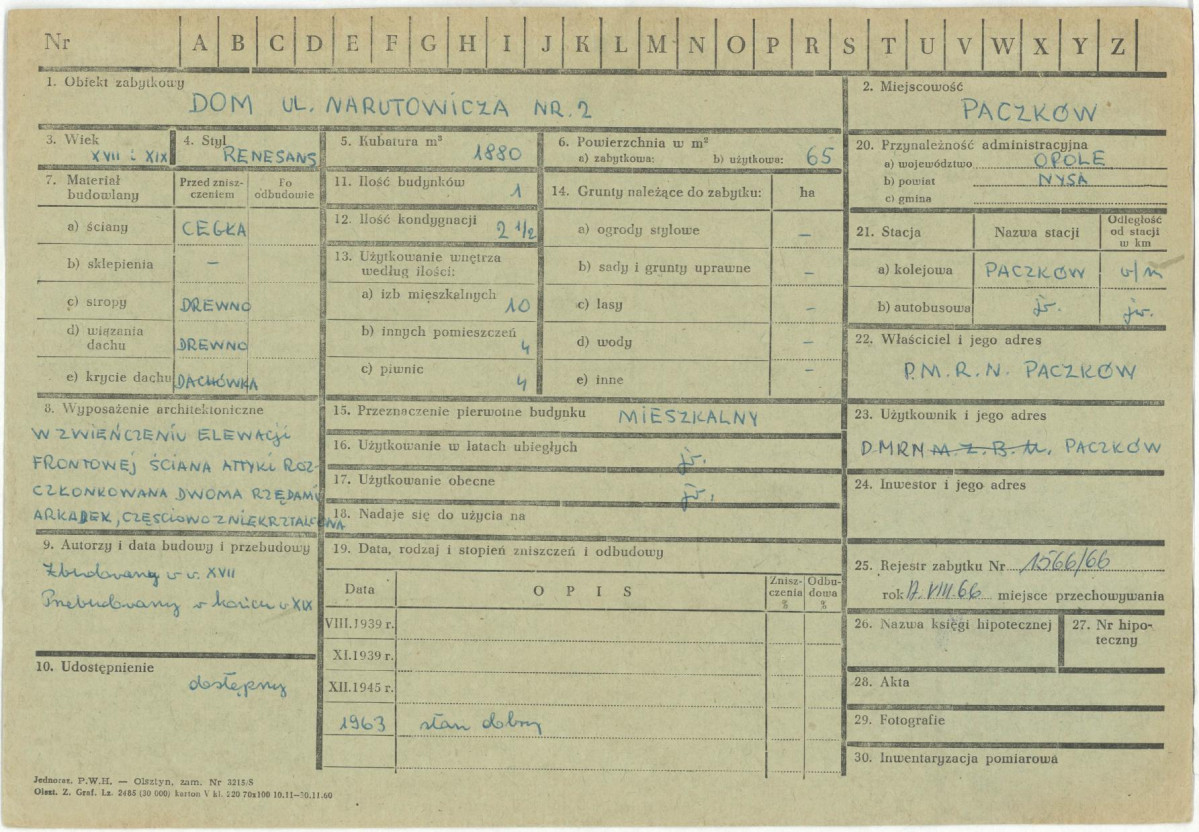 Nr A B C D E F G H I J K L M N O P R S T U V W X Y Z
1. Obiekt zabytkowy
DOM UL. NARUTOWICZA NR. 2
2. Miejscowość
PACZKÓW
3. Wiek
XVII i XIX
4. Styl
RENESANS
5. Kubatura m³
1880
6. Powierzchnia w m²
a) zabytkowa: b) użytkowa: 65
20. Przynależność administracyjna
a) województwo OPOLE
b) powiat NYSA
c) gmina
7. Materiał budowlany
Przed zniszczeniem
Po odbudowie
a) ściany CEGŁA
b) sklepienia –
c) stropy DREWNO
d) wiązania dachu DREWNO
e) krycie dachu DACHÓWKA
11. Ilość budynków
1
12. Ilość kondygnacji
2 1/2
13. Użytkowanie wnętrza
według ilości:
a) izb mieszkalnych
10
b) innych pomieszczeń
4
c) piwnic
4
14. Grunty należące do zabytku: ha
a) ogrody stylowe –
b) sady i grunty uprawne –
c) lasy –
d) wody –
e) inne –
21. Stacja
Nazwa stacji
Odległość
od stacji
w km
a) kolejowa PACZKÓW v/m
b) autobusowa jw. jw.
22. Właściciel i jego adres
P.M.R.N. PACZKÓW
8. Wyposażenie architektoniczne
W ZWIEŃCZENIU ELEWACJI
FRONTOWEJ ŚCIANA ATTYKI ROZ-
CZŁONKOWANA DWOMA RZĘDAMI
ARKADEK, CZĘŚCIOWO ZNIEKRZTAŁCONA
15. Przeznaczenie pierwotne budynku MIESZKALNY
16. Użytkowanie w latach ubiegłych jw.
17. Użytkowanie obecne jw.
18. Nadaje się do użycia na
23. Użytkownik i jego adres
P.MRN M.Z.B.M. PACZKÓW
24. Inwestor i jego adres
9. Autorzy i data budowy i przebudowy
Zbudowany w w. XVII
Przebudowany w końcu w XIX
10. Udostępnienie
dostępny
19. Data, rodzaj i stopień zniszczeń i odbudowy
Data
OPIS
Zniszczenia %
Odbudowa %
VIII.1939 r.
XI.1939 r.
XII.1945 r.
1963 stan dobry
25. Rejestr zabytku Nr 1566/66
rok 17. VIII 66 miejsce przechowywania
26. Nazwa księgi hipotecznej
27. Nr hipoteczny
28. Akta
29. Fotografie
30. Inwentaryzacja pomiarowa
Jednoraz. P.W.H. — Olsztyn, zam. Nr 3215/S
Olszt. Z. Graf. Lz. 2485 (30 000) karton V kl. 220 70x100 10.11–30.11.60